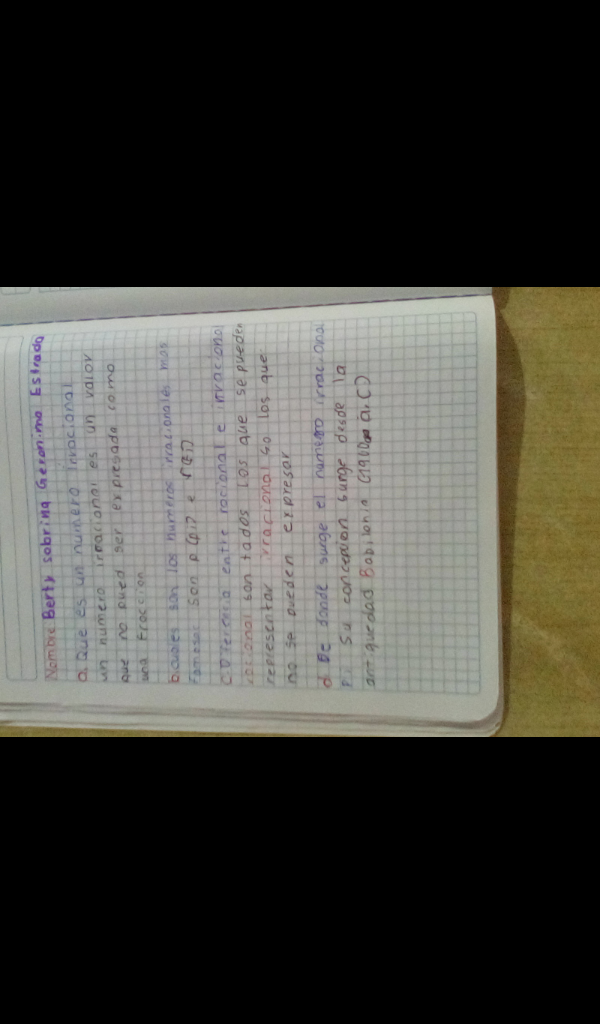 Nombre Berty sobrina Geronimo Estrada
a. Que es un numero irracional
un numero irracional es un valor
que no pued ser expresado como
una fraccion
b cuales son los numeros irracionales mas
famosos son p (pi) e
c. Diferencia entre racional e irracional
racional son todados los que se pueden
representar irracional so los que
no se pueden expresar
d De donde surge el numero irracional
pi su concepcion surge desde la
antiguedad Babilonia (1900 a.C)